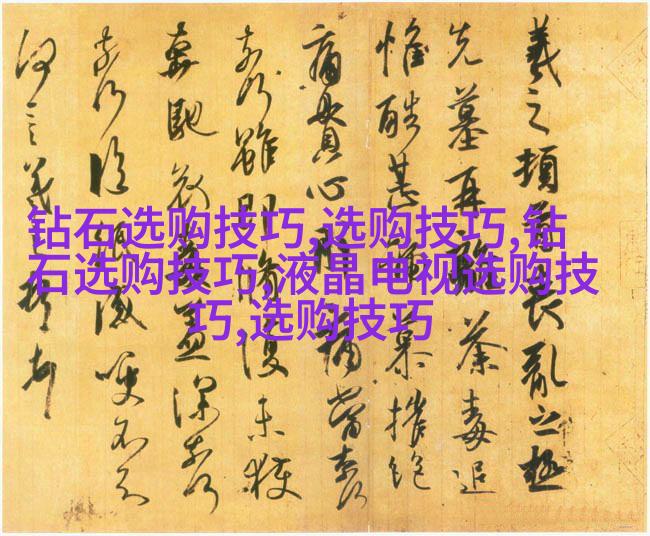 钻石选购技巧,选购技巧,钻
石选购技巧,液晶电视选购技
巧,选购技巧
羲之頓首喪亂之極
先墓再離荼毒追
惟酷甚號慕摧絕
痛貫心肝痛當奈何
奈何雖即脩復未獲
奔馳哀毒益深奈何
奈何臨紙感哽不知
何言羲之頓首頓首